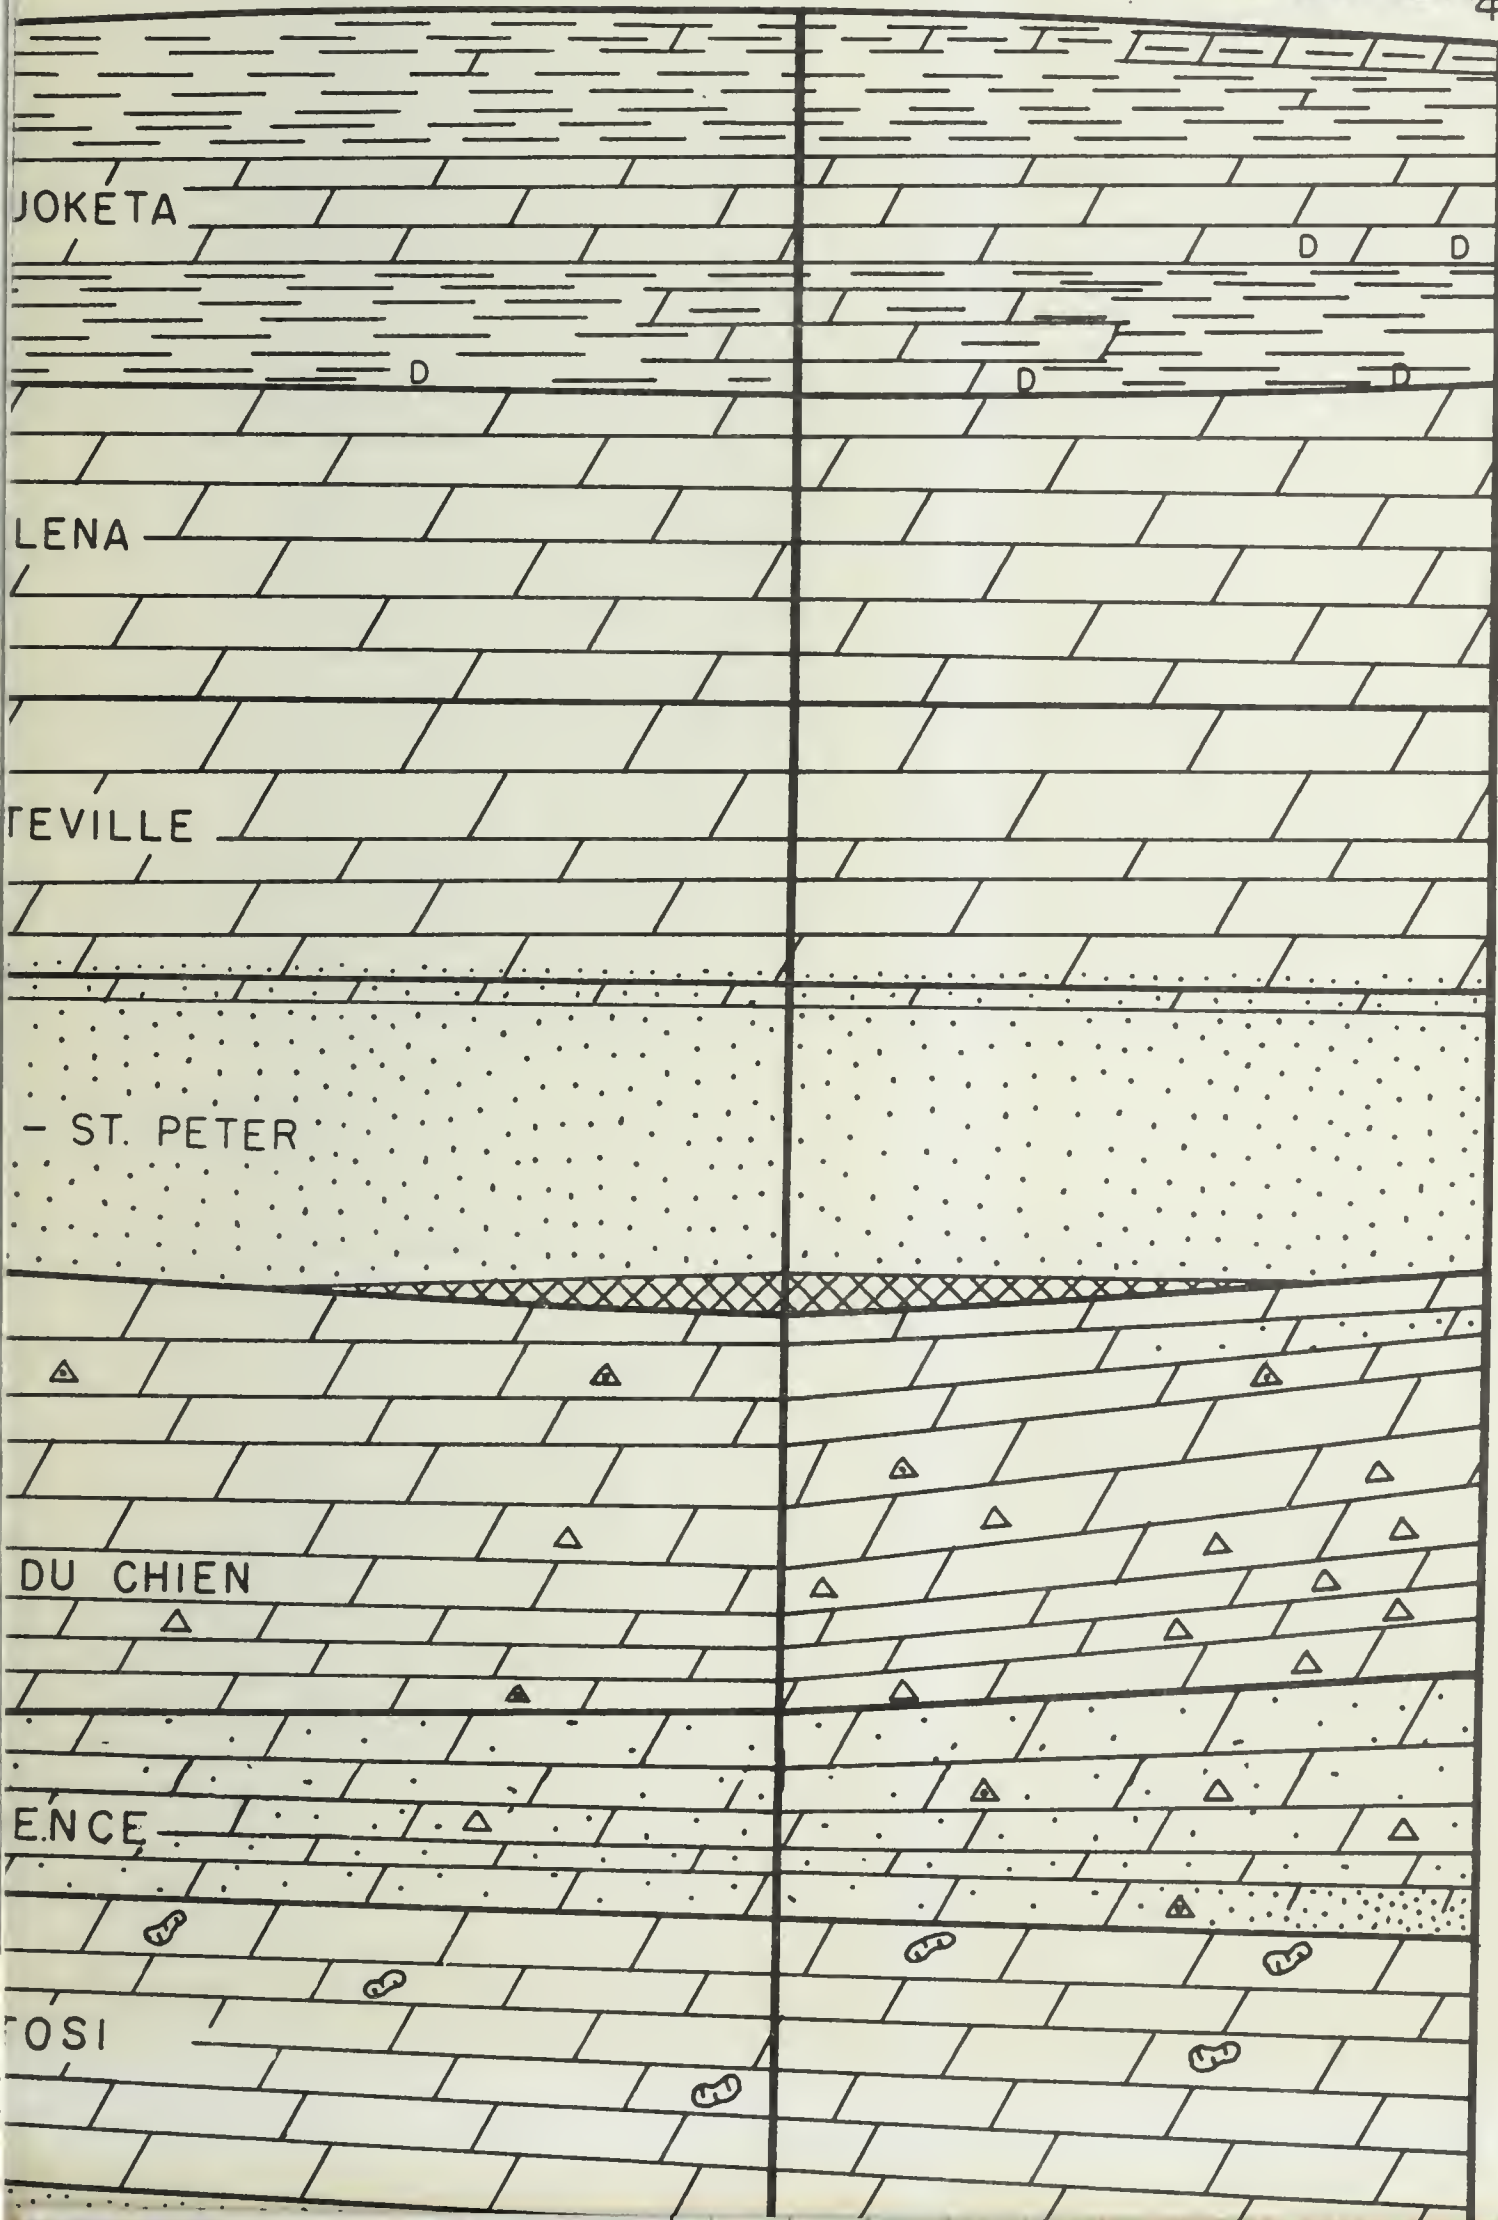 4
UOKETA
D D
D D D
LENA
TEVILLE
- ST. PETER
DU CHIEN
ENCE
TOSI